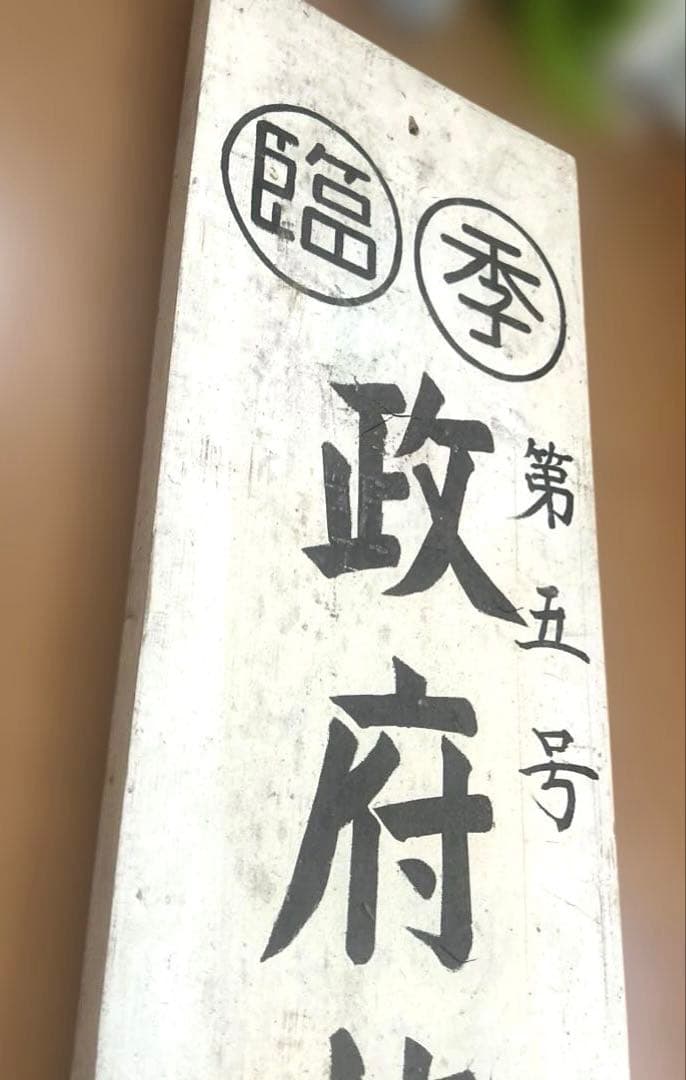 臨 季
第五号
政府